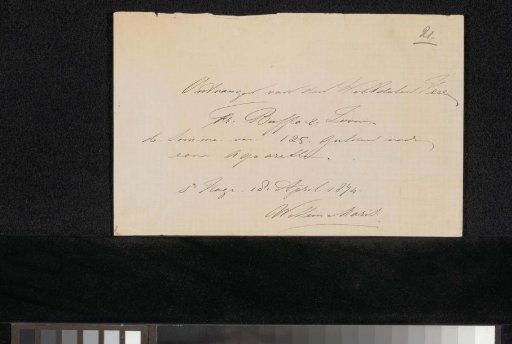 21.
Ontvangen van den WelEdelen Heer
Fr. Buffa & Zoon
de Somma van 125. gulden voor
eene aquarelle.
s' Hage. 18. April 1874.
Willem Maris.